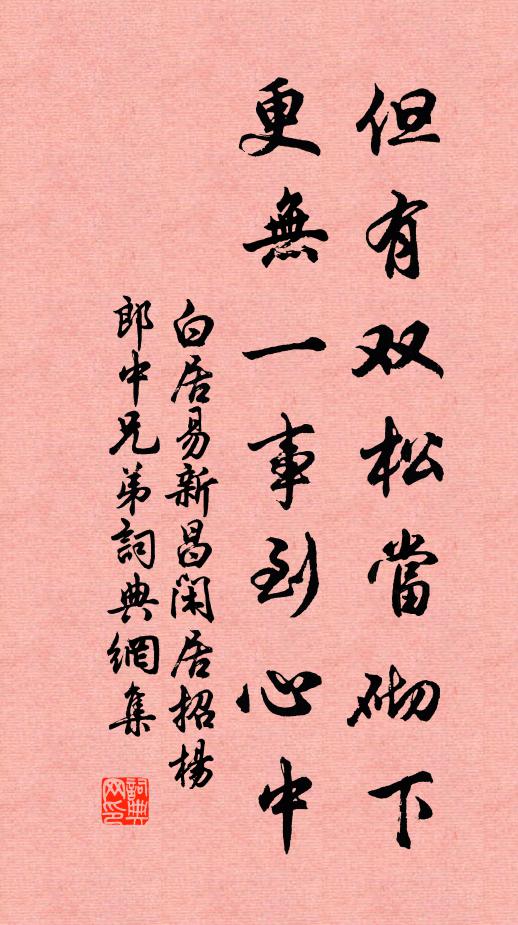 但有双松當砌下
更無一事到心中
白居易新昌闲居招楊
郎中兄弟詞典網集
詞典网印